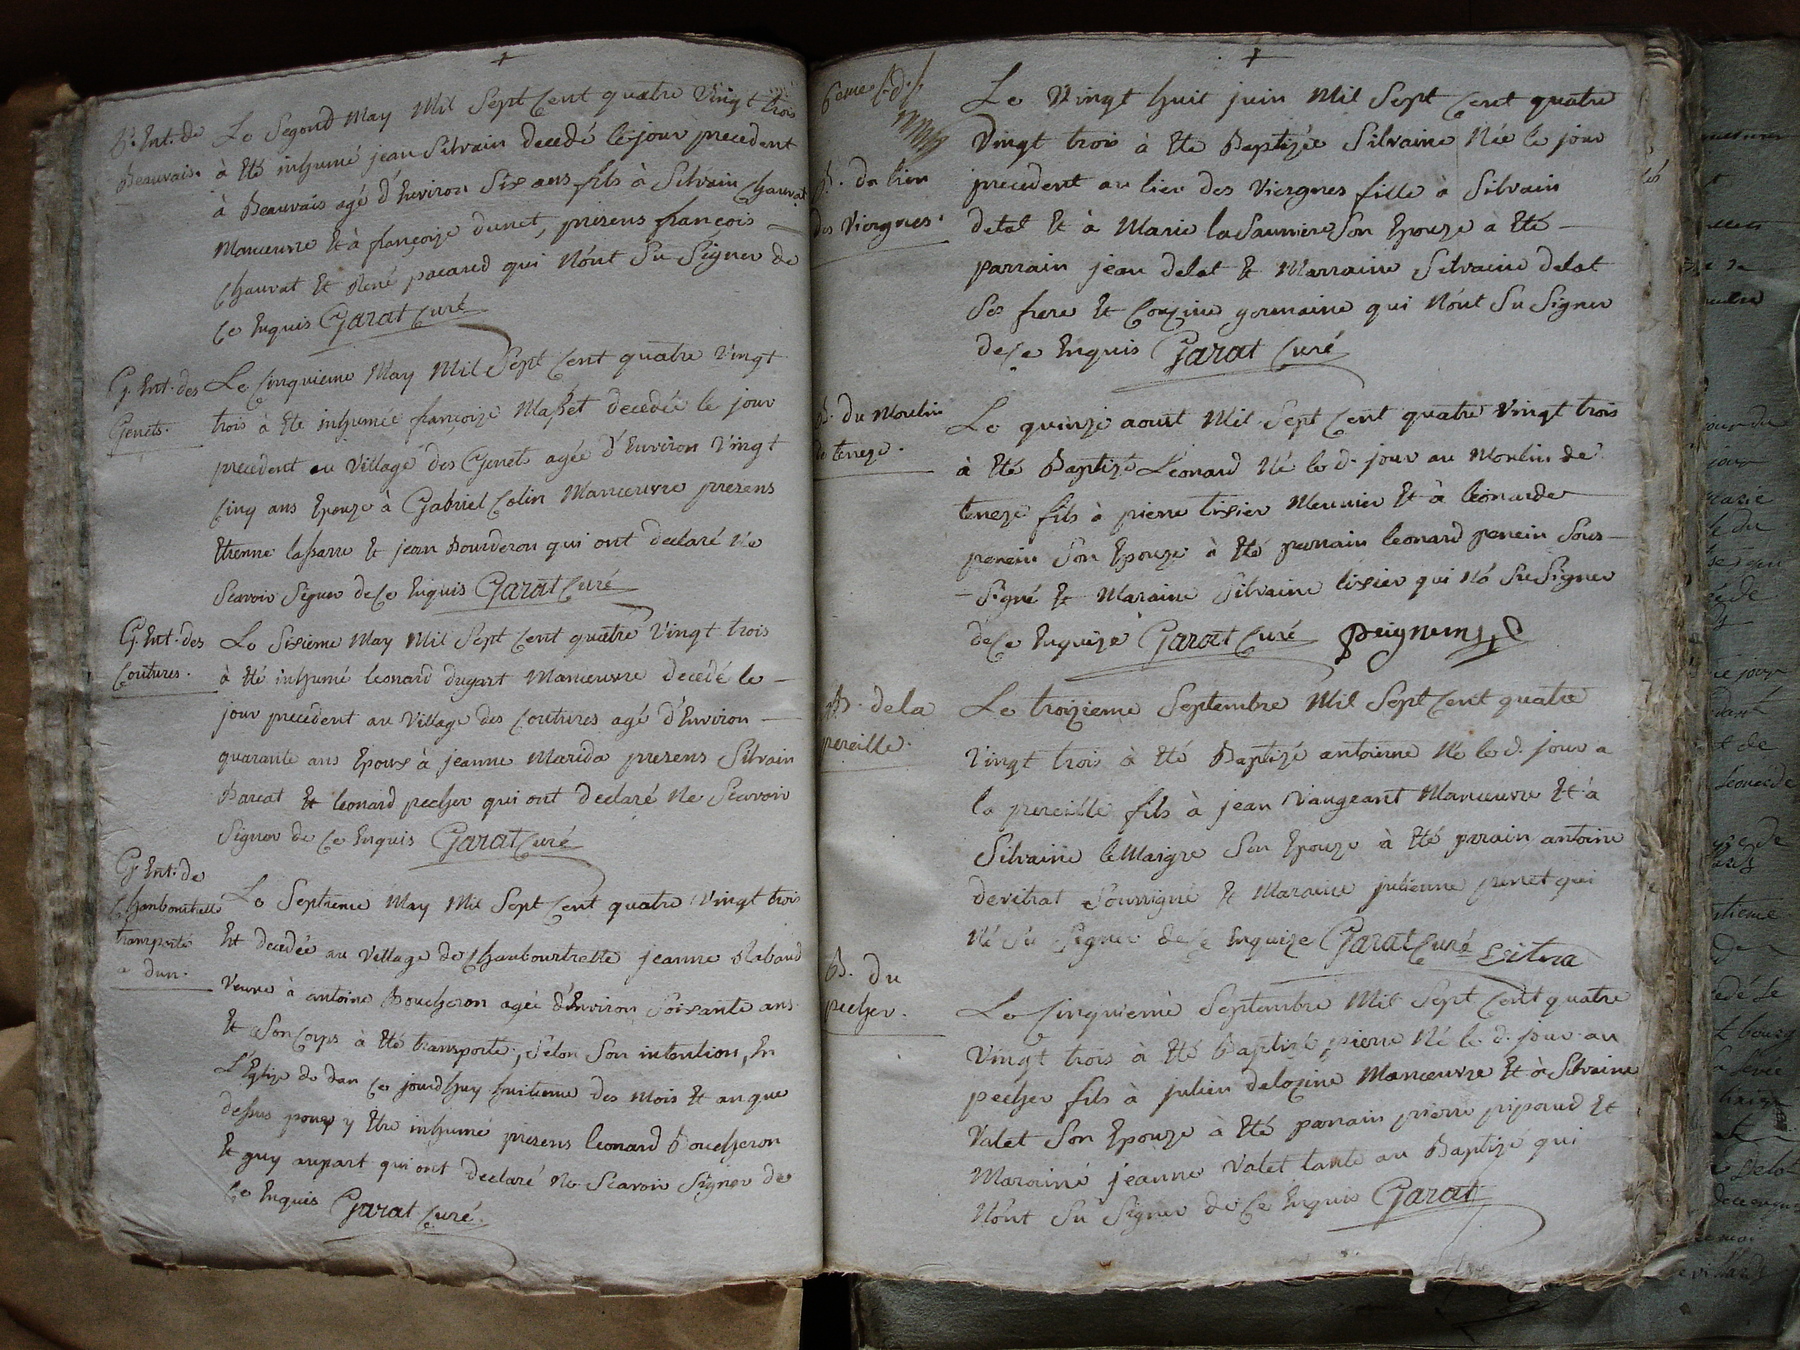 P. Ent. de
Beauvais.
Le Segond May Mil Sept Cent quatre Vingt trois
à Eté inhumé jean Silvain decedé le jour precedent
à Beauvais agé d'Environ Six ans fils à Silvain Chauvat
Manœuvre Et à françoize dunet, presens françois
Chauvat Et René pacared qui N'ont Su Signer de
Ce Enquis Garat Curé
G. Ent. des
Genets.
Le Cinquieme May Mil Sept Cent quatre Vingt
trois à Eté inhumée françoize Masset decedée le jour
precedent au Village des Genets agée d'Environ Vingt
Cinq ans Epouze à Gabriel Colin Manœuvre presens
Etienne lassarre Et jean Bourderon qui ont declaré Ne
Scavoir Signer de Ce Enquis Garat Curé
G. Ent. des
Coutures.
Le Sixieme May Mil Sept Cent quatre Vingt trois
à Eté inhumé leonard dugart Manœuvre decedé le
jour precedent au Village des Coutures agé d'Environ
quarante ans Epoux à jeanne Marida presens Silvain
Barcat Et leonard pecher qui ont declaré Ne Scavoir
Signer de Ce Enquis Garat Curé
G. Ent. de
Chanbourtrelle
transporté
a dun.
Le Septieme May Mil Sept Cent quatre Vingt trois
Est decedée au Village de Chanbourtrelle jeanne Rabaud
Veuve à antoine Boucheron agée d'Environ Soixante ans
Et Son Corps à Eté transporté, Selon Son intention, En
L'Eglize de dun Ce jourdhuy huitieme des Mois Et an que
dessus pour y Etre inhumé presens leonard Boucheron
Et guy aupart qui ont declaré Ne Scavoir Signer de
Ce Enquis Garat Curé.
6eme
B. du lieu
des Viergnes.
Le Vingt huit juin Mil Sept Cent quatre
Vingt trois à Eté Baptizée Silvaine Née le jour
precedent au lieu des Viergnes fille à Silvain
delat Et à Marie la Sauniere Son Epouze à Eté
parrain jean delat Et Marraine Silvaine delat
Ses frere Et Couzine germaine qui N'ont Su Signer
de Ce Enquis Garat Curé
B. du Moulin
de teneze.
Le quinze aout Mil Sept Cent quatre Vingt trois
à Eté Baptizé Léonard Né le d. jour au Moulin de
teneze fils à pierre tixier Meunier Et à leonarde
penein Son Epouze à Eté parrain leonard penein Sous-
Signé Et Maraine Silvaine tixier qui N'a Su Signer
de Ce Enquize Garat Curé
B. de la
pereille.
Le troizieme Septembre Mil Sept Cent quatre
Vingt trois à Eté Baptizé antoinne Né le d. jour a
la pereille fils à jean Vaugeant Manœuvre Et à
Silvaine le Maigre Son Epouze à Eté parain antoine
devitrat Soussigné Et Maraine julienne perret qui
N'a Su Signer de Ce Enquize Garat Curé
B. du
pecher.
Le Cinquieme Septembre Mil Sept Cent quatre
Vingt trois à Eté Baptizé pierre Né le d. jour au
pecher fils à julien delozine Manœuvre Et à Silvaine
Valet Son Epouze à Eté parrain pierre pipaud Et
Maraine jeanne Valet tante au Baptizé qui
N'ont Su Signer de Ce Enquis Garat